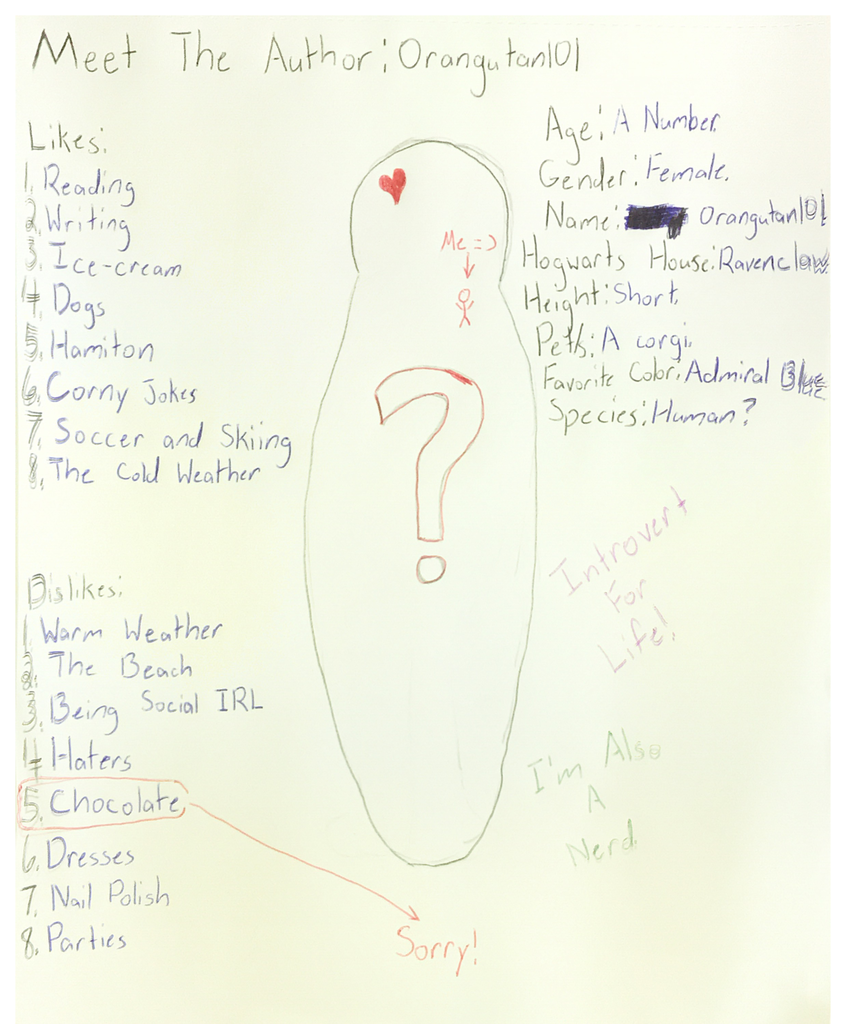 Meet The Author: Orangutan101
Likes:
1. Reading
2. Writing
3. Ice-cream
4. Dogs
5. Hamiton
6. Corny Jokes
7. Soccer and Skiing
8. The Cold Weather
Dislikes:
1. Warm Weather
2. The Beach
3. Being Social IRL
4. Haters
5. Chocolate
6. Dresses
7. Nail Polish
8. Parties
Me =>
?
Sorry!
Age: A Number.
Gender: Female.
Name: Orangutan101
Hogwarts House: Ravenclaw
Height: Short.
Pets: A corgi.
Favorite Color: Admiral Blue
Species: Human?
Introvert
For
Life!
I'm Also
A
Nerd.